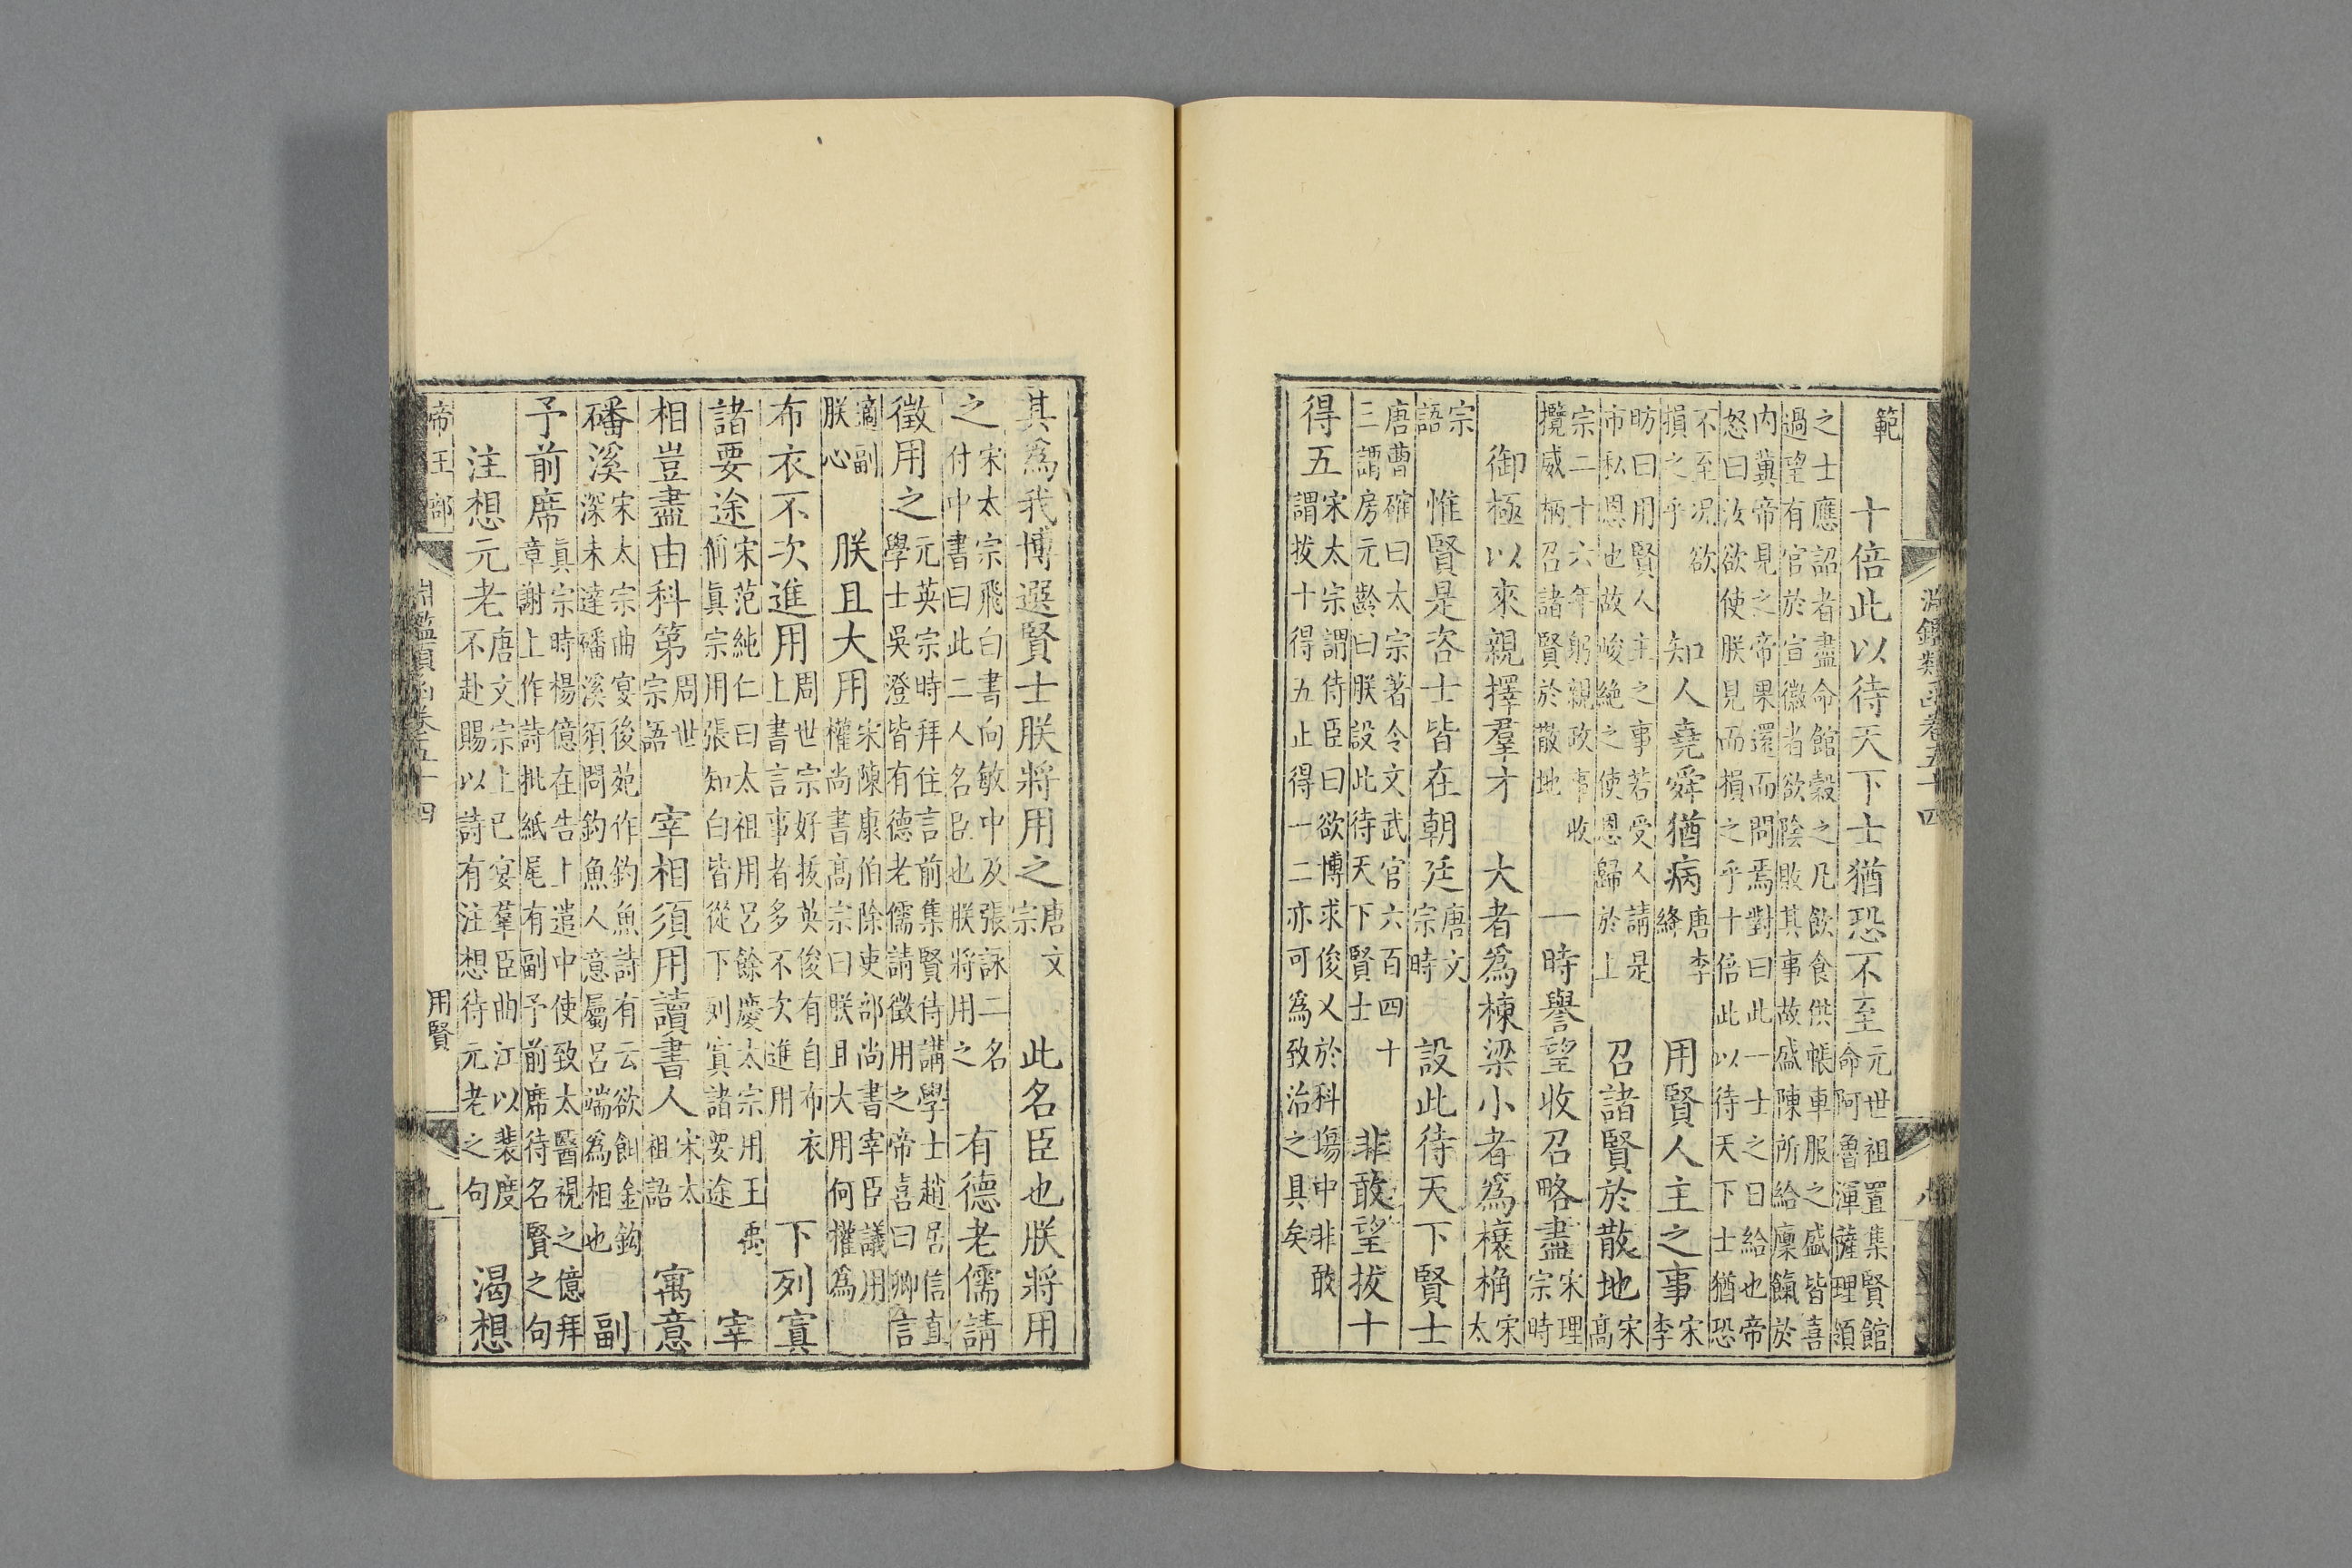 淵鑑類函卷五十四
範　十倍此以待天下士猶恐不至元世祖置集賢館命阿魯渾薩理領
之士應詔者盡命館穀之凡飲食供帳車服之盛皆喜過望有官於宣徽者欲陰敗其事故盛陳所給廩餼於
内冀帝見之帝果還而問焉對曰此一士之日給也帝怒曰汝欲使朕見而損之乎十倍此以待天下士猶恐
不至況欲損之乎　知人堯舜猶病唐李絳　用賢人主之事宋李
昉曰用賢人主之事若受人請是市私恩也故峻絶之使恩歸於上　召諸賢於散地宋高
宗二十六年躬親政事收攬威柄召諸賢於散地　一時譽望收召略盡宋理宗時
御極以來親擇羣才　大者爲棟梁小者爲榱桷宋太
宗語　惟賢是咨士皆在朝廷唐文宗時　設此待天下賢士
唐曹確曰太宗著令文武官六百四十三謂房元齡曰朕設此待天下賢士　非敢望拔十
得五宋太宗謂侍臣曰欲博求俊乂於科塲中非敢謂拔十得五止得一二亦可爲致治之具矣
其爲我博選賢士朕將用之唐文宗　此名臣也朕將用
之宋太宗飛白書向敏中及張詠二名付中書曰此二人名臣也朕將用之　有德老儒請
徵用之元英宗時拜住言前集賢侍講學士趙居信直學士吳澄皆有德老儒請徵用之帝喜曰卿言
適副朕心　朕且大用宋陳康伯除吏部尚書宰臣議用權尚書高宗曰朕且大用何權爲
布衣不次進用周世宗好拔英俊有自布衣上書言事者多不次進用　下列寘
諸要途宋范純仁曰太祖用呂餘慶太宗用王禹偁眞宗用張知白皆從下列寘諸要途　宰
相豈盡由科第周世宗語　宰相須用讀書人宋太祖語　寓意
磻溪宋太宗曲宴後苑作釣魚詩有云欲餌金鈎深未達磻溪須問釣魚人意屬呂端爲相也　副
予前席眞宗時楊億在告上遣中使致太醫視之億拜章謝上作詩批紙尾有副予前席待名賢之句
注想元老唐文宗上巳宴羣臣曲江以裴度不赴賜以詩有注想待元老之句　渴想
帝王部　淵鑑類函卷五十四　用賢　九